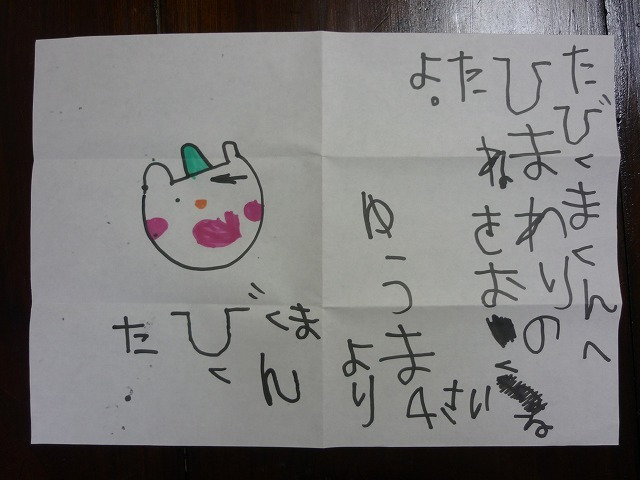 たびくまくんへ
ひまわりの
たねさおくね
よ。
ゆうま4さい
より
たびくま
くん